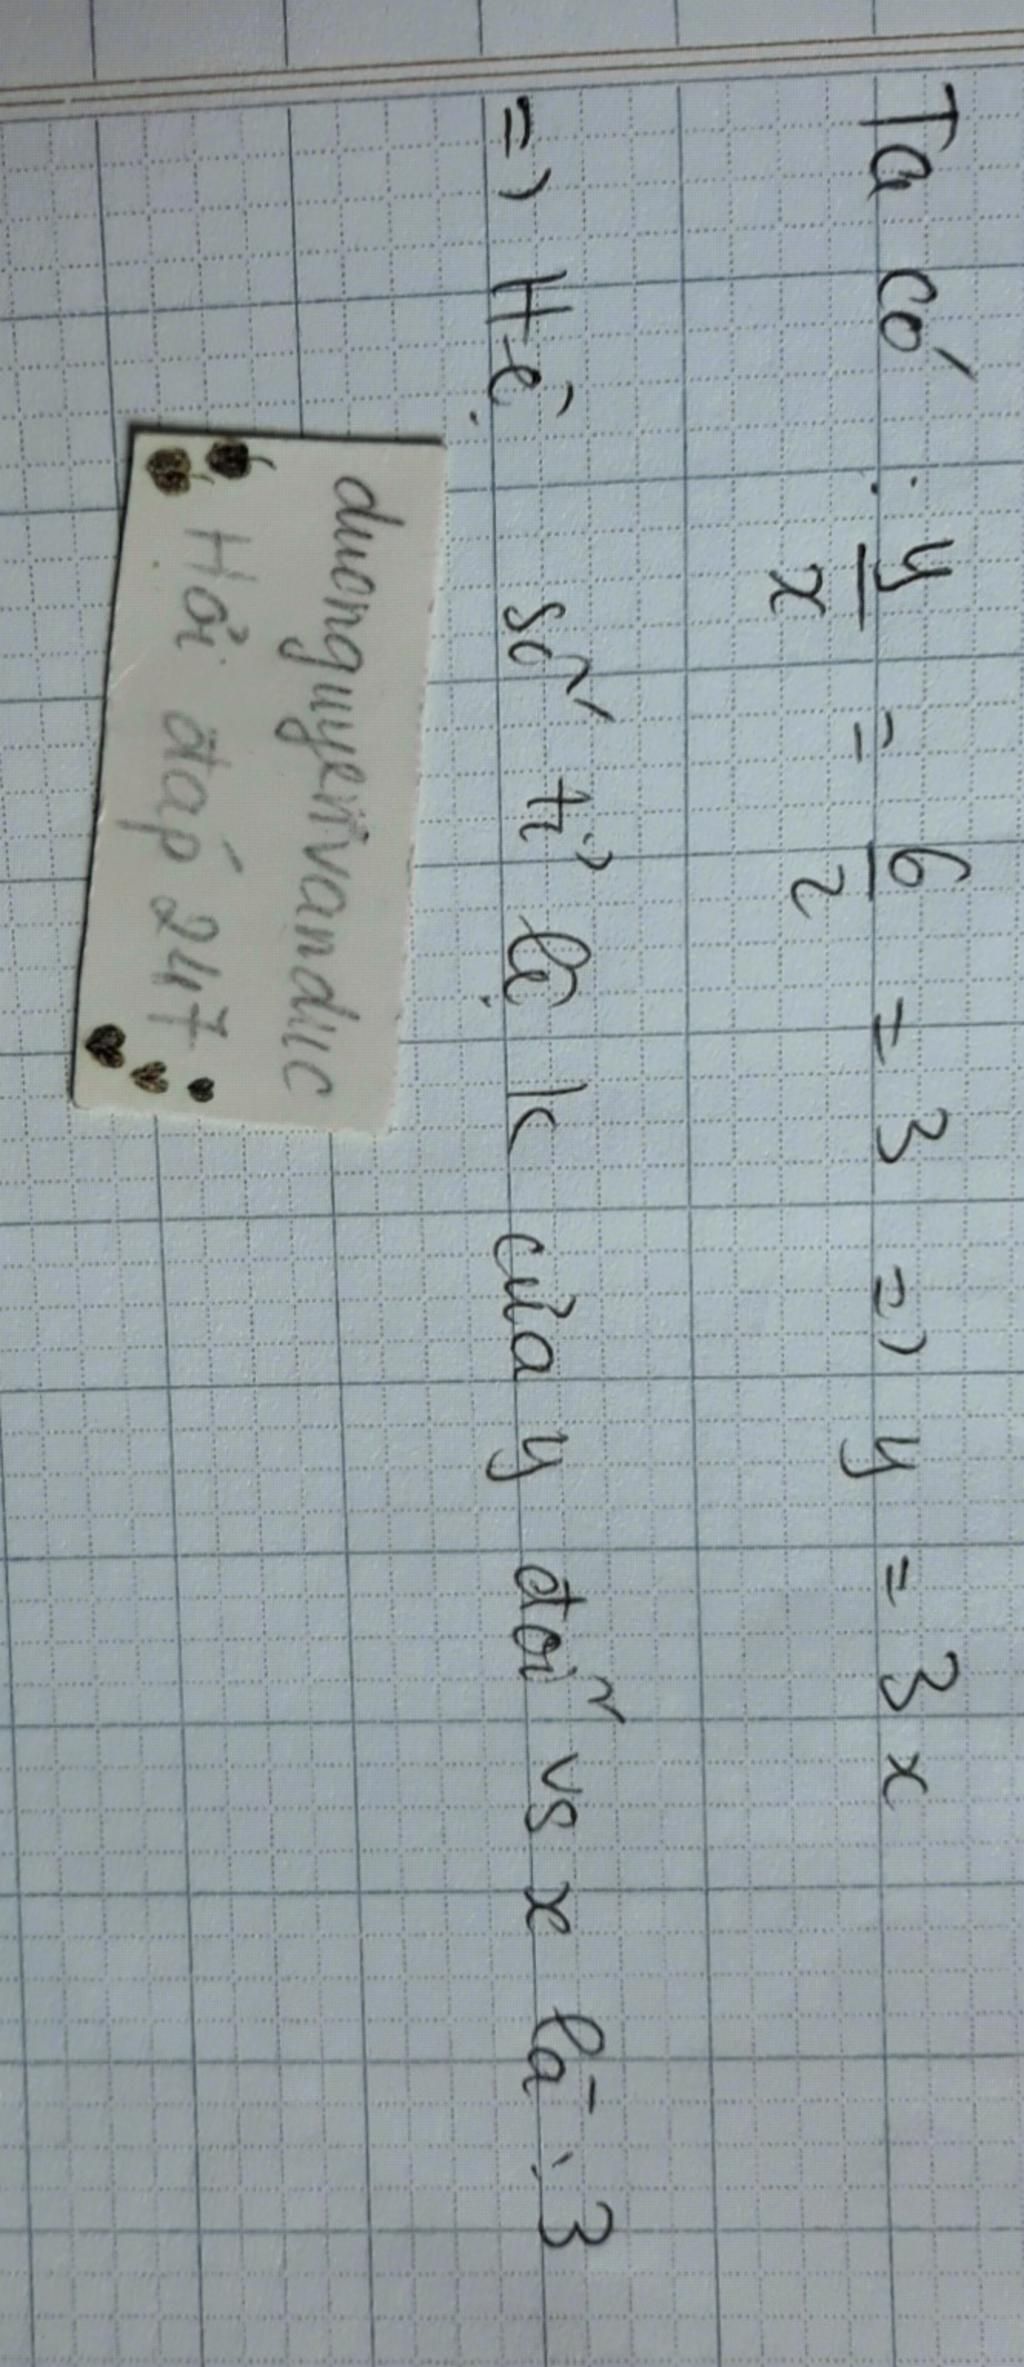 Ta có : y/x = 6/2 = 3 => y = 3x
=> Hệ số tỉ lệ k của y đối vs x là : 3
duongnguyenvanduc
Hỏi đáp 247